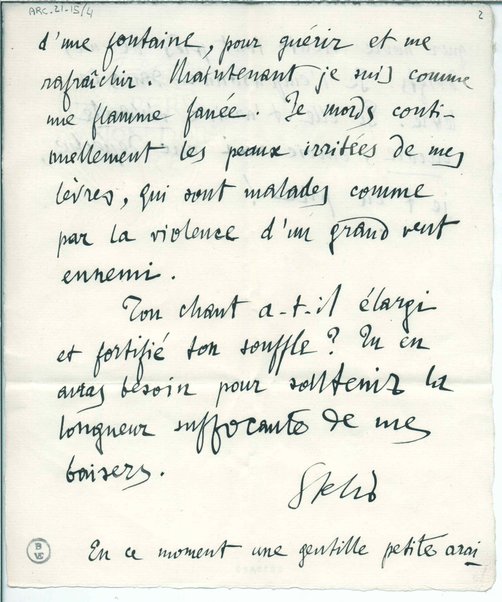 ARC.21-15/4
2
d'une fontaine, pour guérir et me
rafraîchir. Maintenant je suis comme
une flamme fanée. Je mords conti-
nuellement les peaux irritées de mes
lèvres, qui sont malades comme
par la violence d'un grand vent
ennemi.
Ton chant a-t-il élargi
et fortifié ton souffle? Tu en
auras besoin pour soutenir la
longueur suffocante de mes
baisers.
Stelio
En ce moment une gentille petite arai